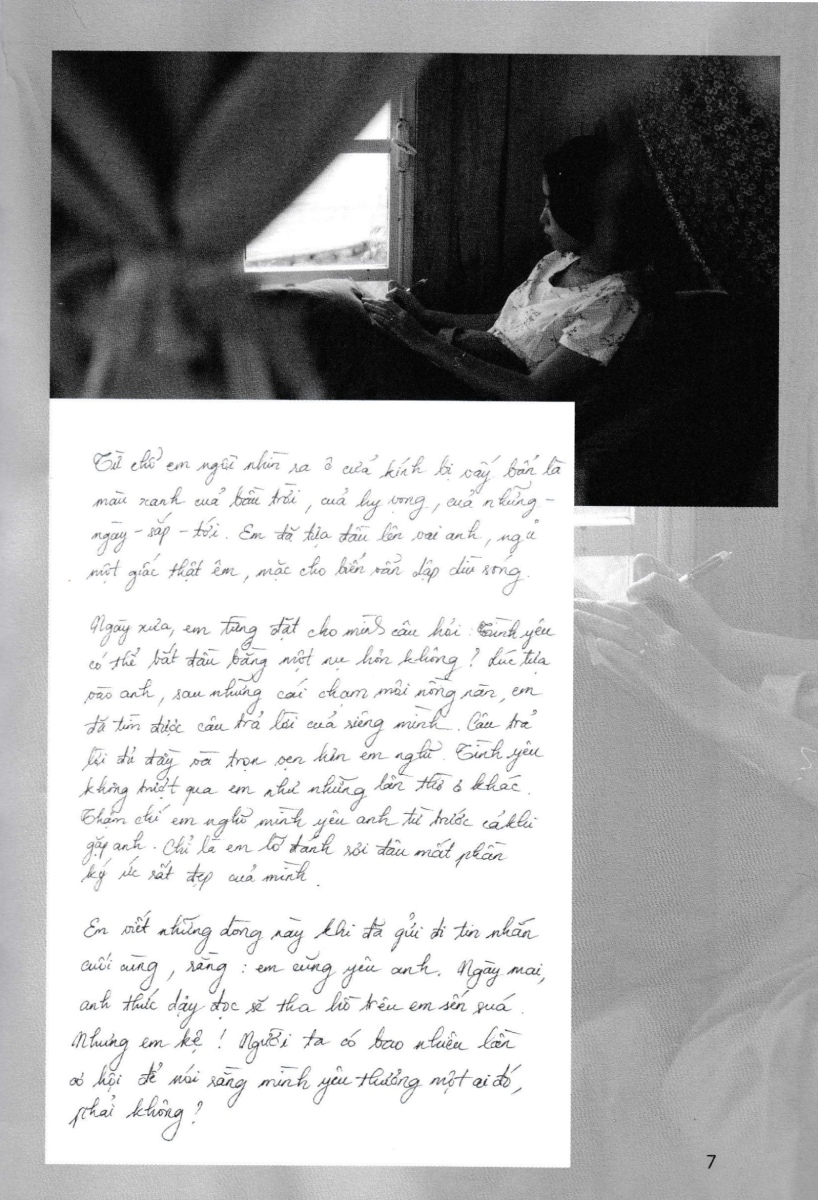 Từ chỗ em ngồi nhìn ra ô cửa kính bị vấy bẩn là
màu xanh của bầu trời, của hy vọng, của những-
ngày-sắp-tới. Em đã tựa đầu lên vai anh, ngủ
một giấc thật êm, mặc cho biển vẫn dập dìu sóng.
Ngày xưa, em từng đặt cho mình câu hỏi: Tình yêu
có thể bắt đầu bằng một nụ hôn không? Lúc tựa
vào anh, sau những cái chạm môi nồng nàn, em
đã tìm được câu trả lời của riêng mình. Câu trả
lời đủ đầy và trọn vẹn hơn em nghĩ. Tình yêu
không trượt qua em như những lần thờ ơ khác.
Thậm chí em nghĩ mình yêu anh từ trước cả khi
gặp anh. Chỉ là em lỡ đánh rơi đâu mất phần
ký ức rất đẹp của mình.
Em viết những dòng này khi đã gửi đi tin nhắn
cuối cùng, rằng: em cũng yêu anh. Ngày mai,
anh thức dậy đọc sẽ tha hồ trêu em sến quá.
Nhưng em kệ! Người ta có bao nhiêu lần
cơ hội để nói rằng mình yêu thương một ai đó,
phải không?
7